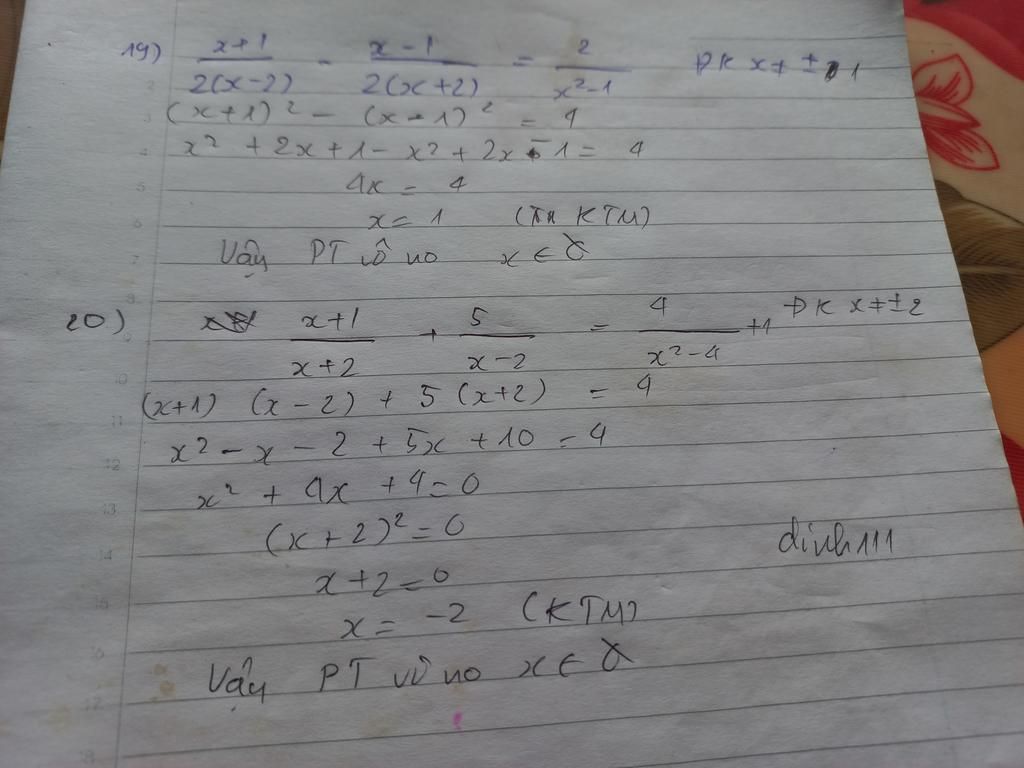 19) x+1/2(x-2) - x-1/2(x+2) = 2/x²-1 ĐK x ≠ ±1
(x+1)² - (x-1)² = 4
x² + 2x + 1 - x² + 2x - 1 = 4
4x = 4
x = 1 (KTM)
Vậy PT vô no x ∈ ∅
20) x+1/x+2 + 5/x-2 = 4/x²-4 +1 ĐK x ≠ ±2
(x+1) (x-2) + 5 (x+2) = 4
x² - x - 2 + 5x + 10 = 4
x² + 4x + 4 = 0
(x+2)² = 0
dinh111
x+2 = 0
x = -2 (KTM)
Vậy PT vô no x ∈ ∅